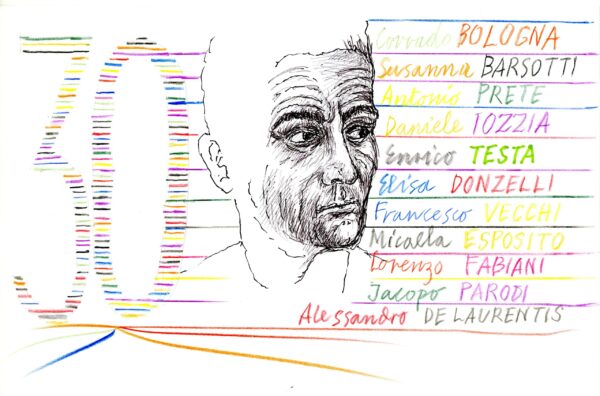 30
Corrado BOLOGNA
Susanna BARSOTTI
Antonio PRETE
Daniele IOZZIA
Enrico TESTA
Elisa DONZELLI
Francesco VECCHI
Micaela ESPOSITO
Lorenzo FABIANI
Jacopo PARODI
Alessandro DE LAURENTIS